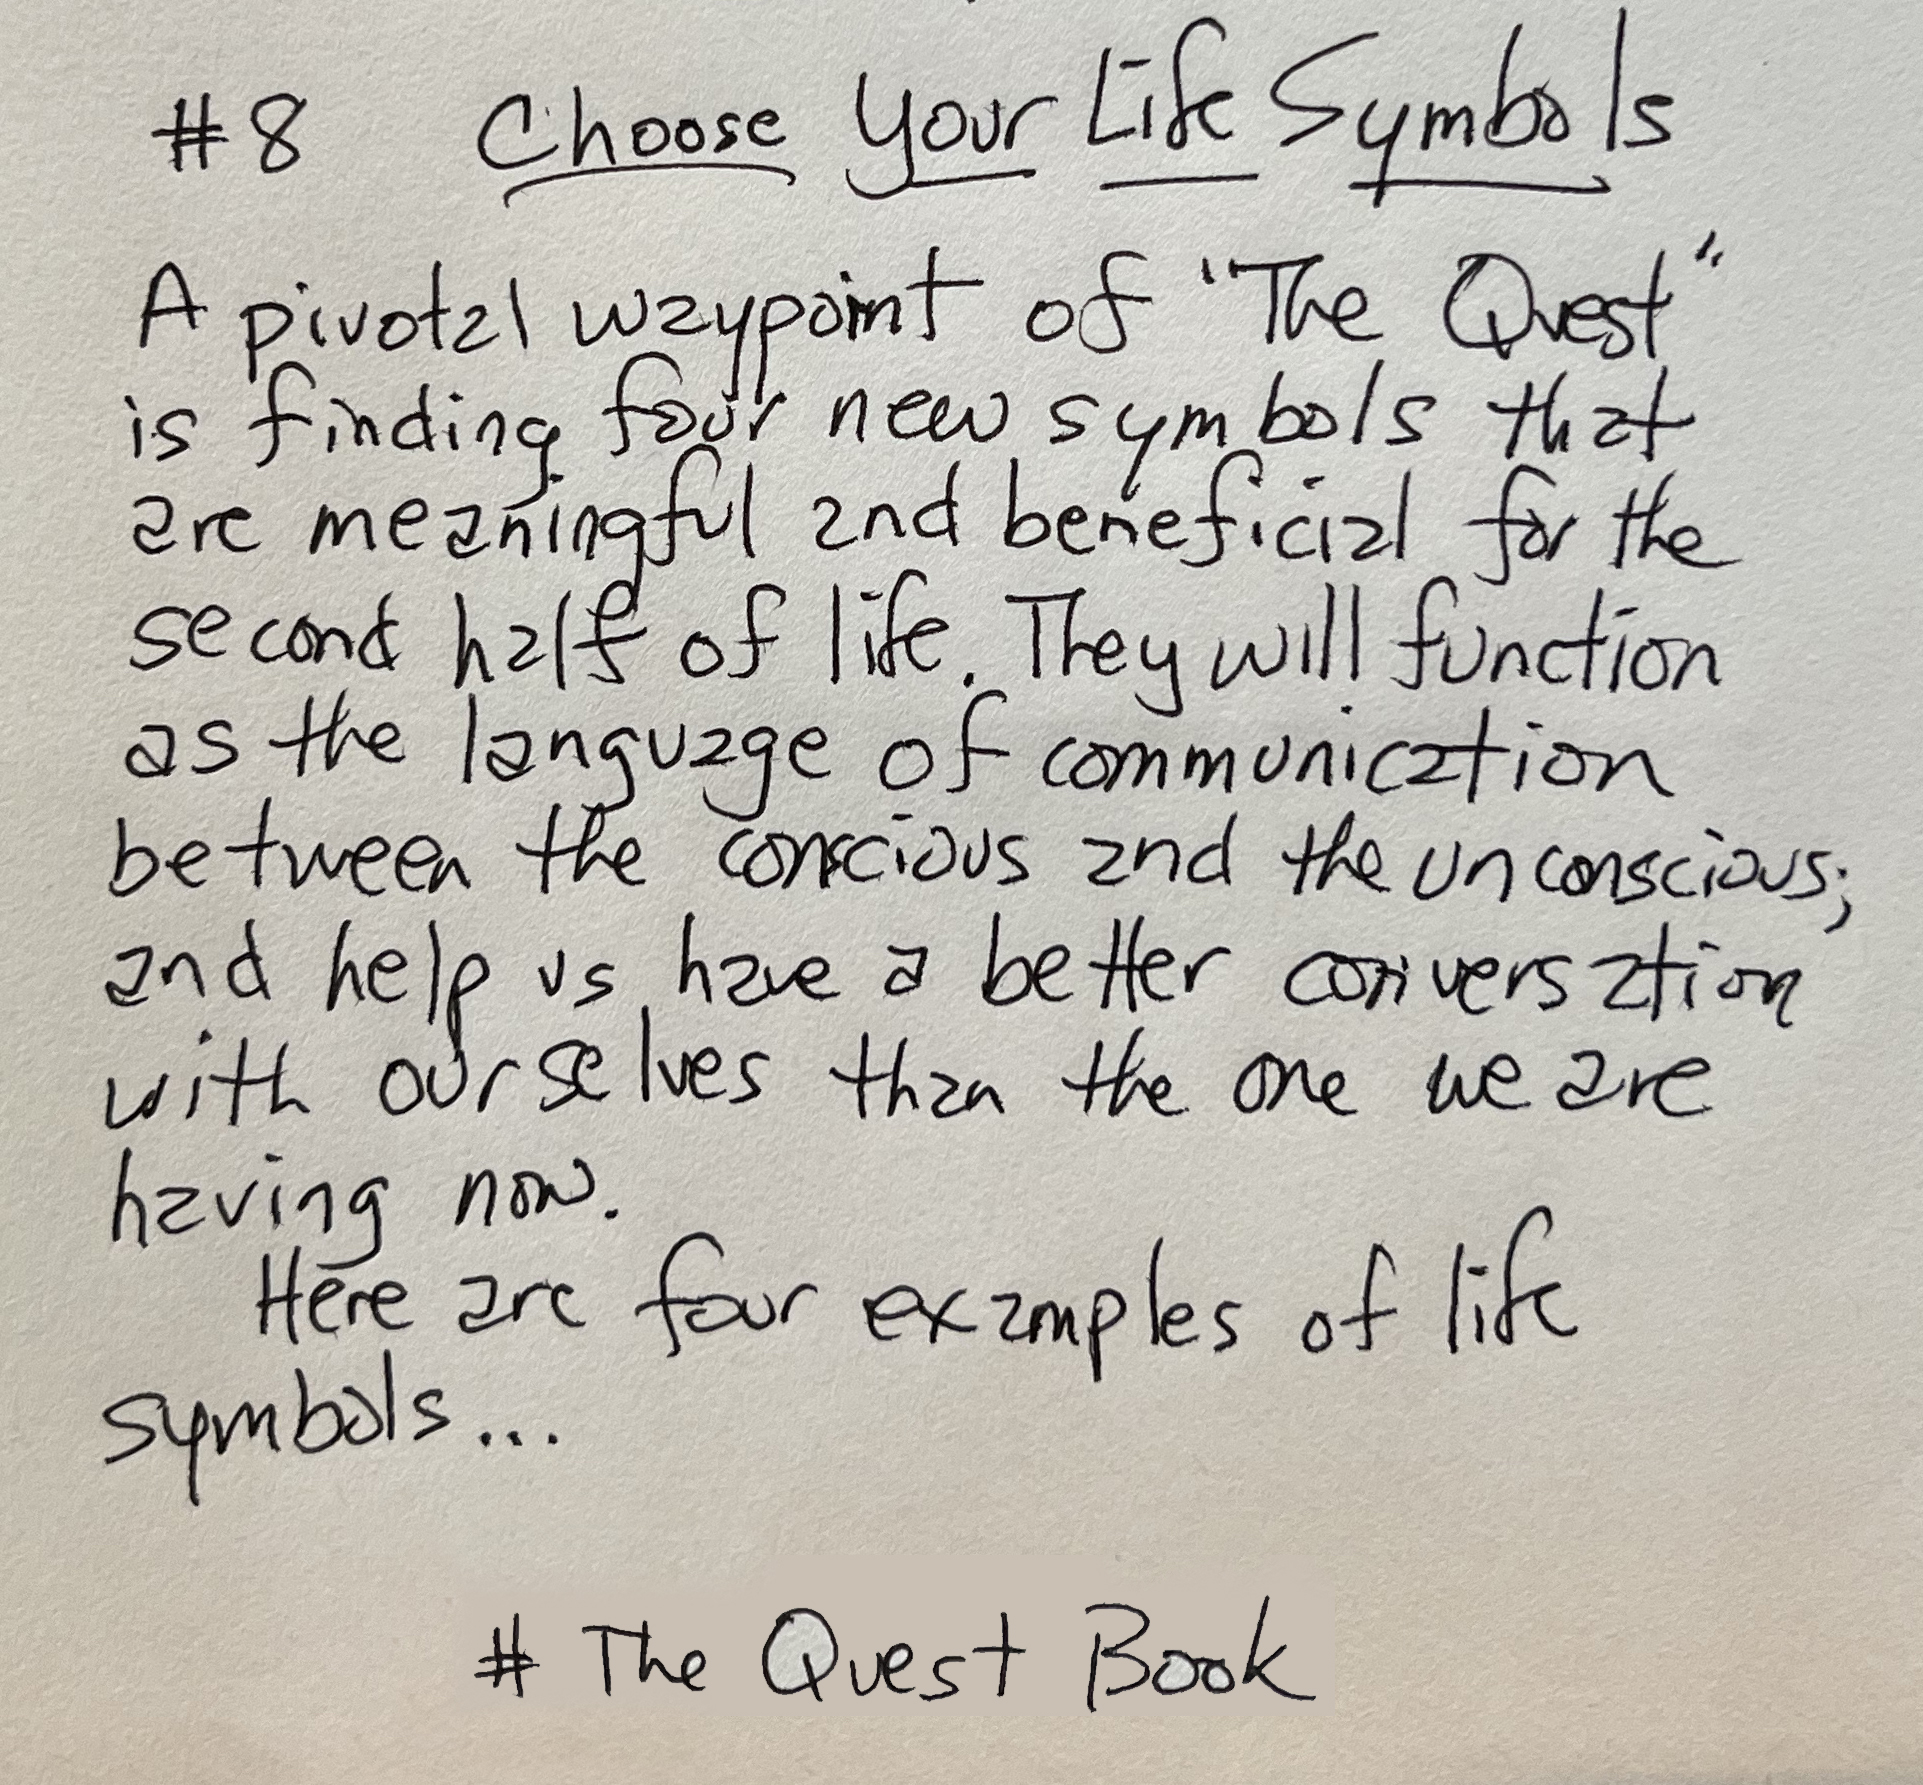 #8 Choose Your Life Symbols
A pivotal waypoint of "The Quest"
is finding four new symbols that
are meaningful and beneficial for the
second half of life. They will function
as the language of communication
between the conscious and the unconscious;
and help us have a better conversation
with ourselves than the one we are
having now.
Here are four examples of life
symbols...
# The Quest Book